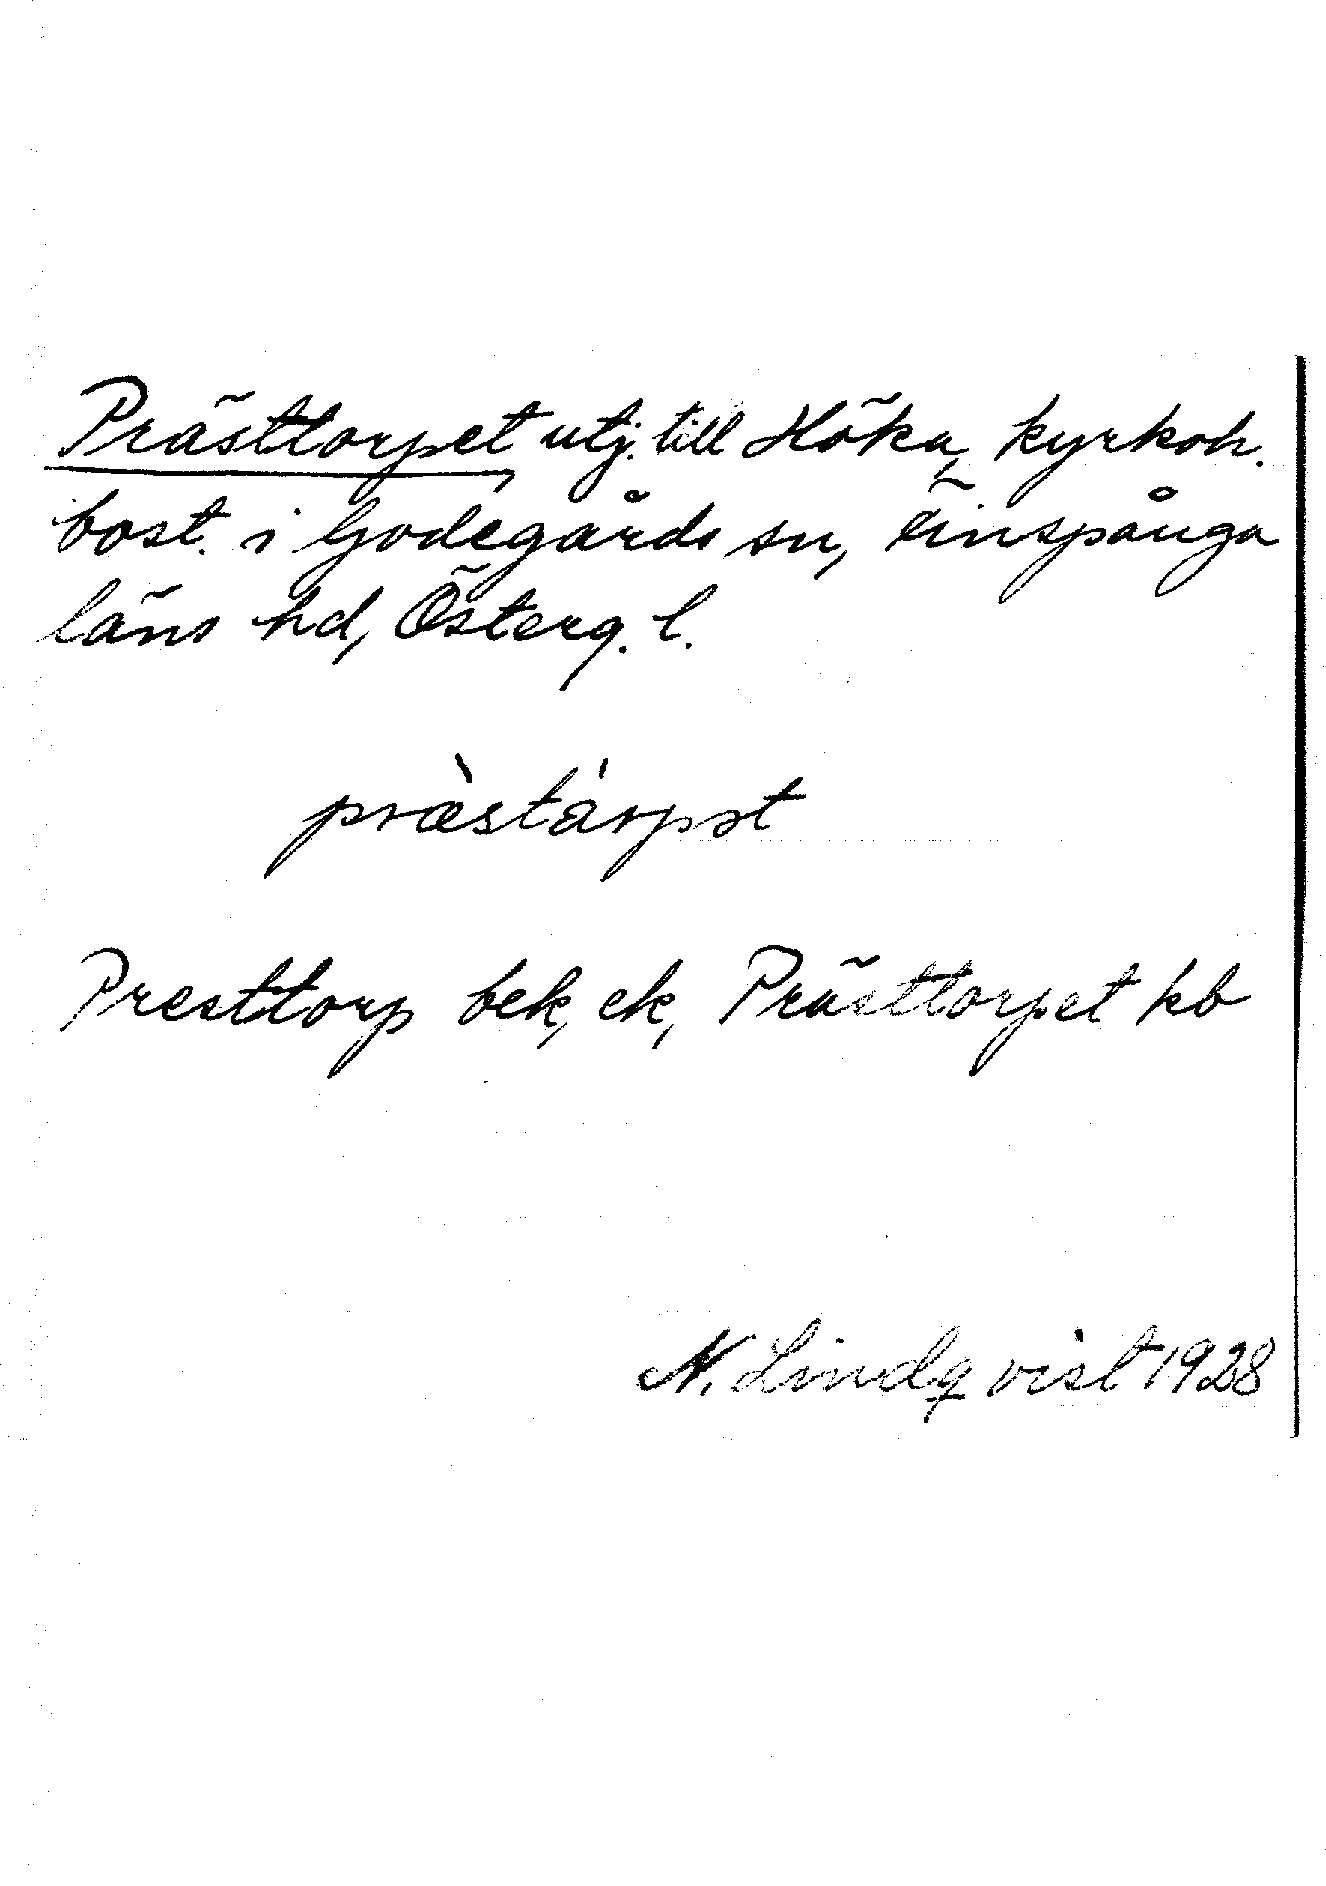 Prästtorpet utj. till Höka, kyrkoh.
bost. i Godegårds sn, Finspånga
läns hd, Österg. l.
præ̀stárpət
Presttorp bek, ek, Prästtorpet kb
N. Lindqvist 1928